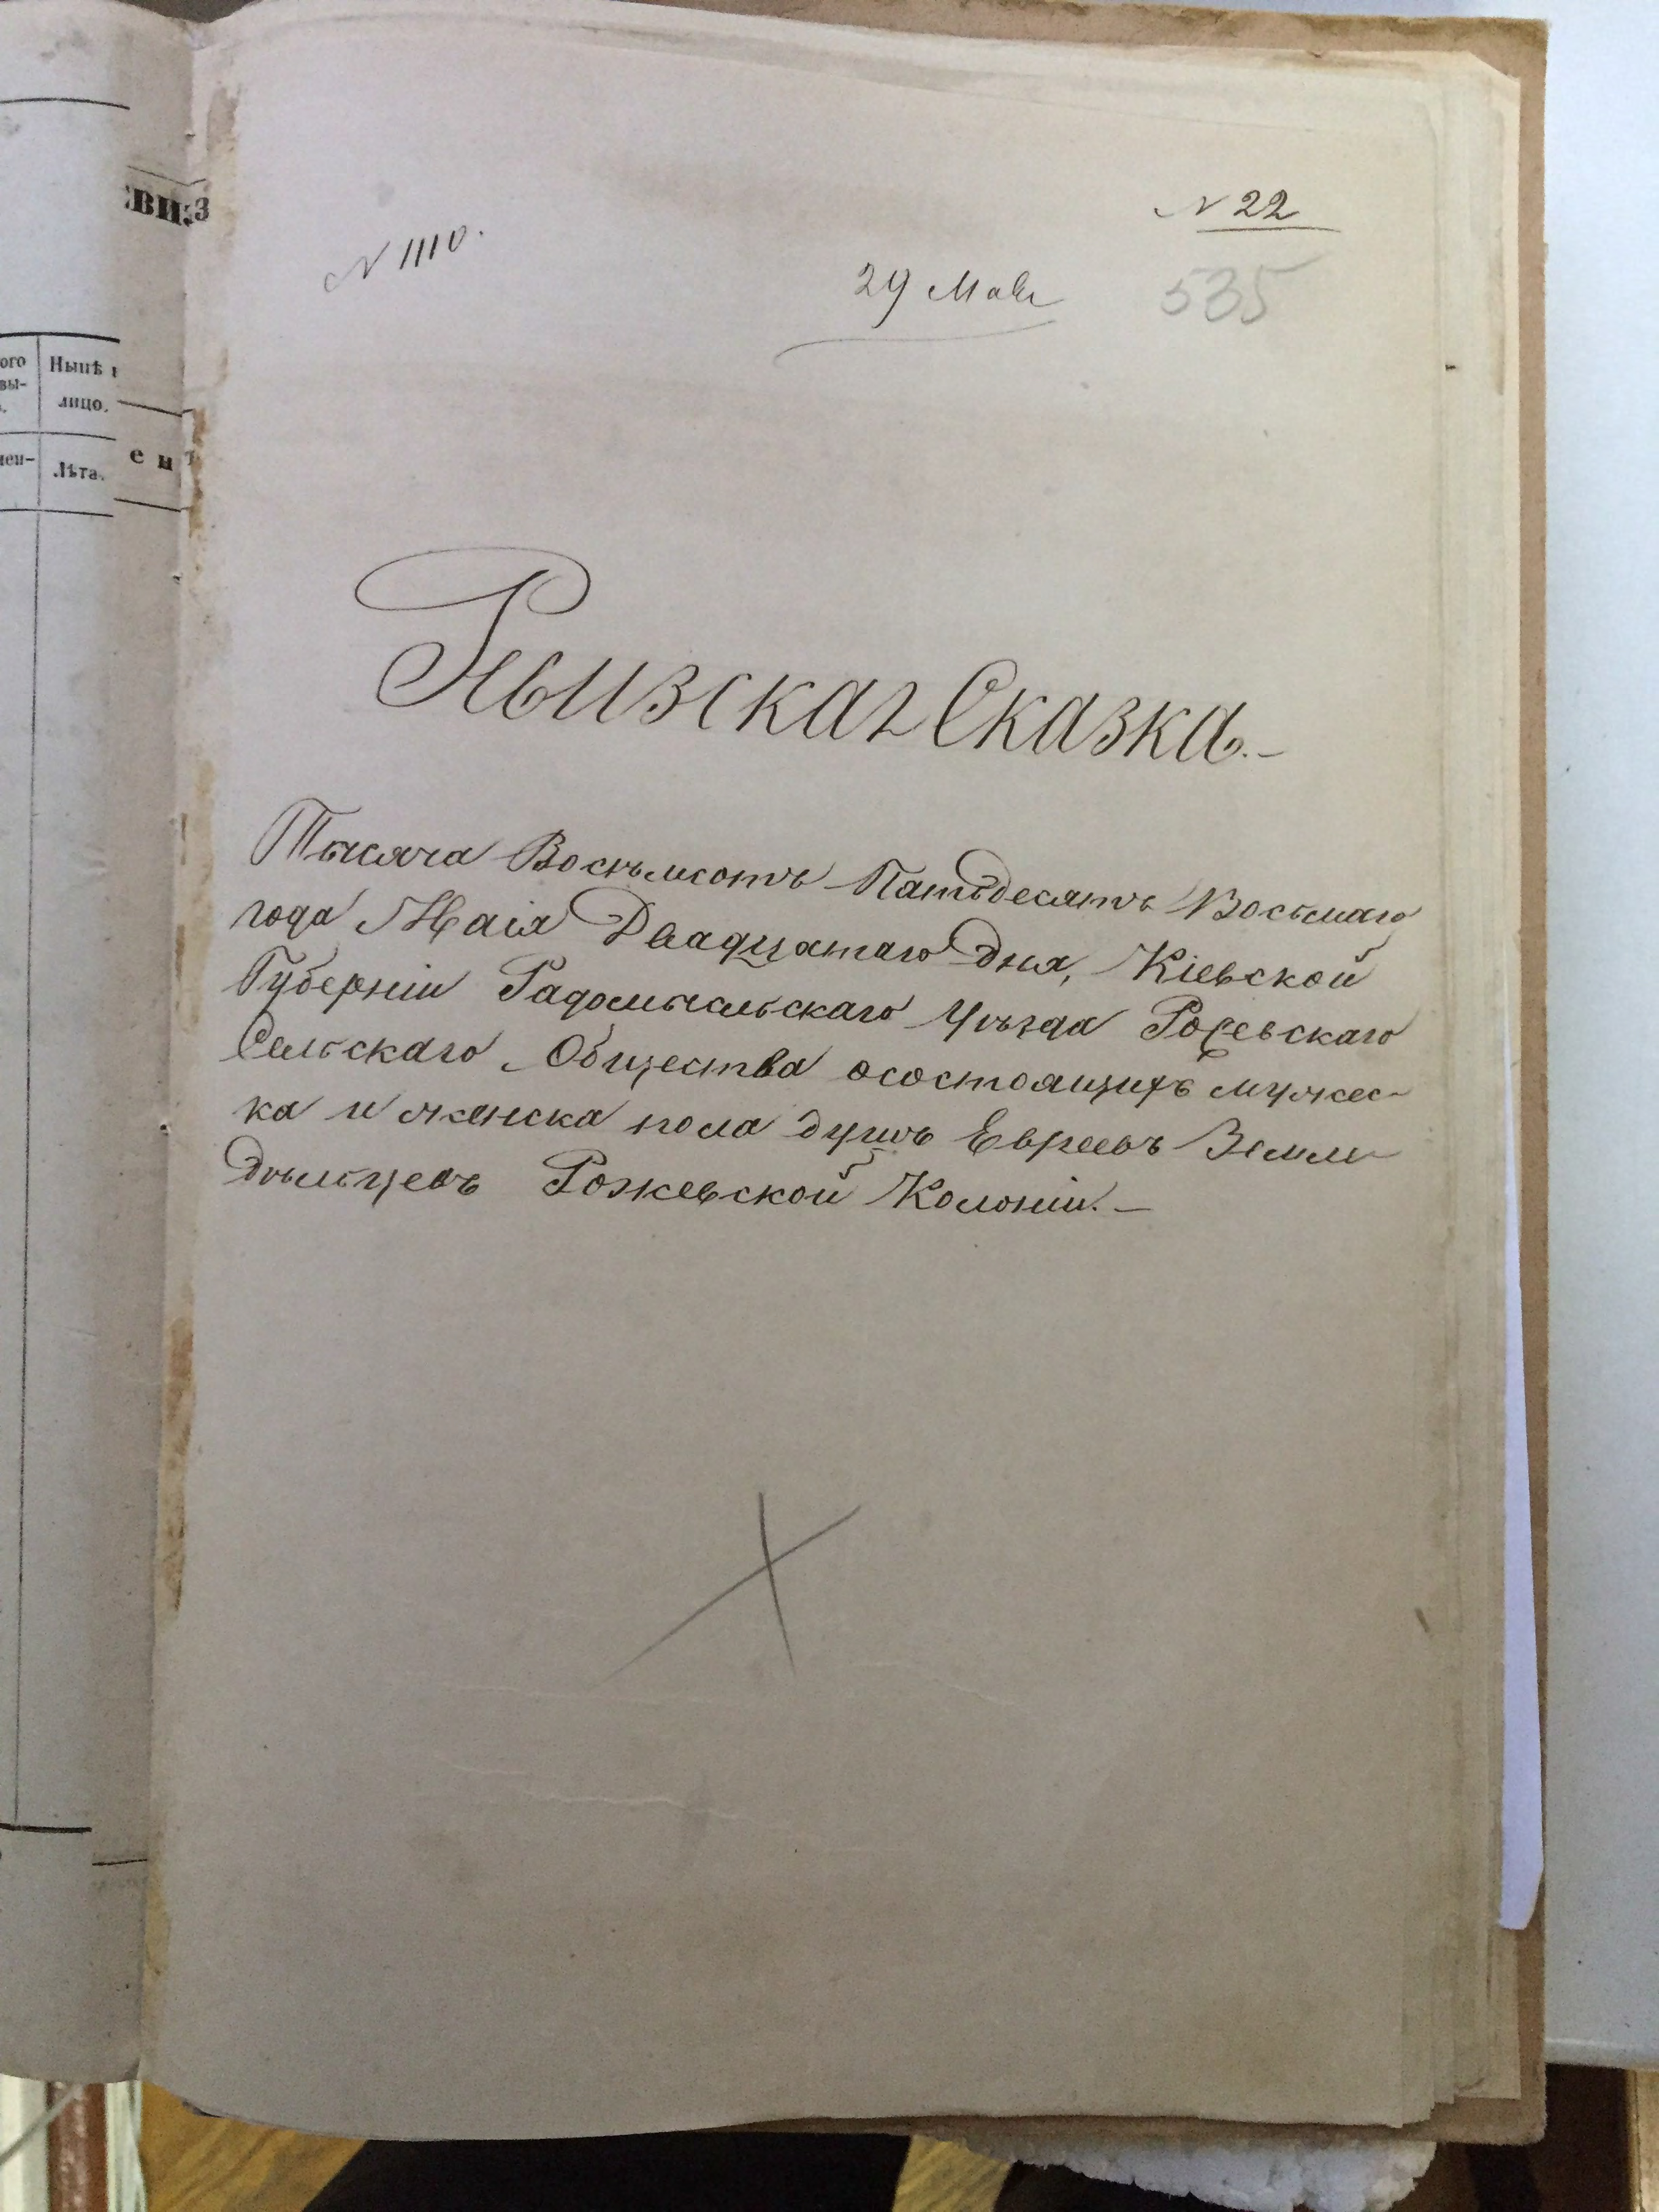 ВИЗ
ого
вы-
Нынѣ
лицо.
Лѣта.
е н
N 22
N 1110.
29 Мая
535
Рѣвизская Сказка.-
Тысяча Восѣмсотъ Пятьдесятъ Восьмаго
года Маія Двадцатаго дня, Кіевской
Губерніи Радомысльскаго Уѣзда
Сельскаго Общества осостоящихъ мужес-
ка и женска пола душъ Евреевъ Земле
дѣльцевъ Рожевской Колоніи.-